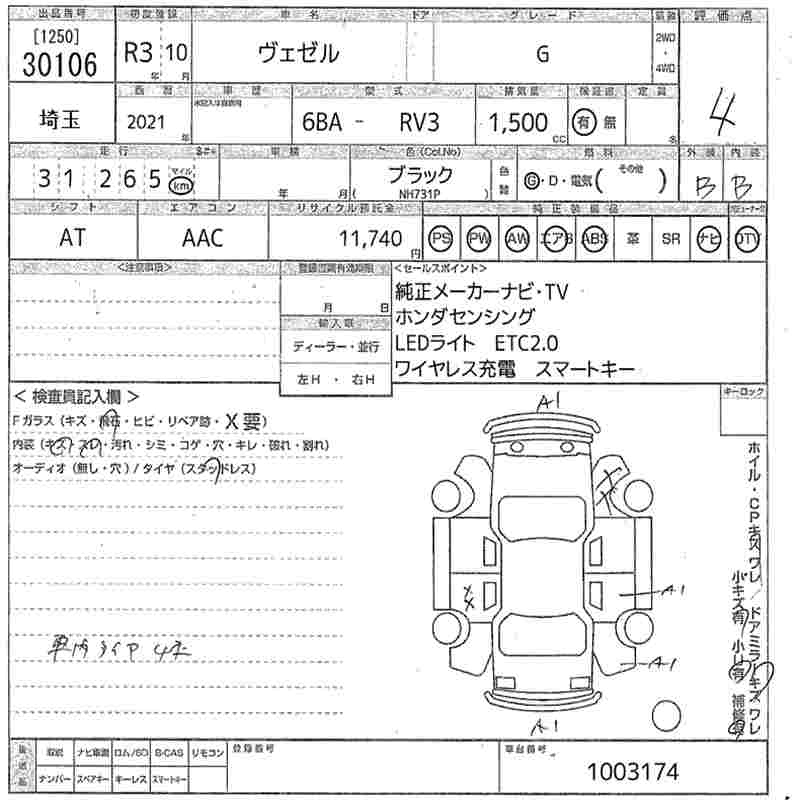 出品番号 初度登録 車名 ドア グレード 評価点
[1250]
30106 R3年 10月 ヴェゼル G 2WD・4WD 4
西暦 車歴 型式 排気量 検証書 定員
埼玉 2021年 6BA - RV3 1,500cc 有 無 名
走行 車検 色(Col.No) 燃料 外装 内装
31 265 マイル km 年 月( ブラック NH731P ) 色替 G・D・電気( その他 ) B B
シフト エアコン リサイクル預託金 純正装備品
AT AAC 11,740円 PS PW AW エアB ABS 革 SR ナビ DTV
<注意事項> 登録書類有効期限 <セールスポイント>
月 日
純正メーカーナビ・TV
輸入車
ホンダセンシング
ディーラー・並行
LEDライト ETC2.0
左H・右H
ワイヤレス充電 スマートキー
キーロック
< 検査員記入欄 >
Fガラス(キズ・飛石・ヒビ・リペア跡・X要)
内装(キズ・スレ・汚れ・シミ・コゲ・穴・キレ・破れ・割れ)
オーディオ(無し・穴)/タイヤ(スタッドレス)
車内タイヤ 4本
A1
X
X
A1
XX
A1
A1
ホイル・CPキズワレ/ドアミラーキズワレ
小キズ有 小U有 補修有
後送品 取説 ナビ車載 ロム/SD B-CAS リモコン 登録番号 車台番号
ナンバー スペアキー キーレス スマートキー 1003174